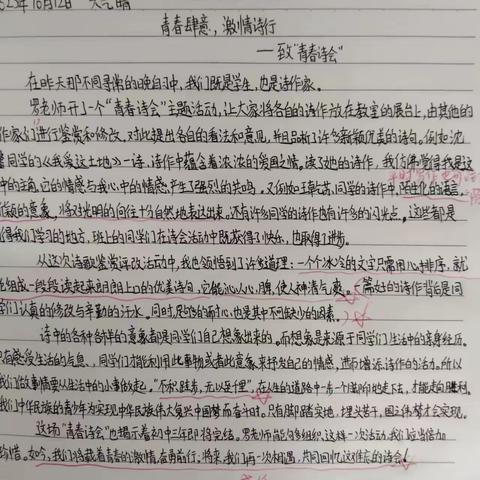 023年10月12日 天气晴
青春肆意，激情诗行
——致“青春诗会”
在昨天那不同寻常的晚自习中，我们既是学生，也是诗作家。
罗老师开了一个“青春诗会”主题活动，让大家将各自的诗作放在教室的展台上，由其他的
作家们进行鉴赏和修改，对此提出各自的看法和意见，并且品析了许多新颖优美的诗句。例如沈
同学的《我爱这土地》一诗，诗作中蕴含着浓浓的爱国之情。读了她的诗作，我仿佛觉得我是这
中的主角，它的情感与我心中的情感产生了强烈的共鸣。又例如王同学的诗作中，陌生化的语言，
新颖的意象，将对光明的向往十分自然地表达出来。还有许多同学的诗作也有许多的闪光点。这些都是
得我们学习的地方，班上的同学们在诗会活动中既获得了快乐，也取得了进步。
从这次诗歌鉴赏评改活动中，我也领悟到了许多道理：一个个冰冷的文字只需用心排序，就
能组成一段段读起来朗朗上口的优美诗句，它能沁人心脾，使人神清气爽。一篇好的诗作背后是同
学们认真的修改与辛勤的汗水。同时，足够的耐心也是其中不缺少的因素。
诗中的各种各样的意象都是同学们自己想象出来的。而想象是来源于同学们生活中的亲身经历。
只有感受生活的气息，同学们才能利用此事物或者此意象来抒发自己的情感，进而增添诗作的活力。所以
我们做事情要从生活中的小事做起。“不积跬步，无以至千里”，在人生的道路中一步一个脚印地走下去，才能走向胜利。
我们中华民族的青少年为实现中华民族伟大复兴中国梦而奋斗时。只有脚踏实地，埋头苦干，国之伟梦才会实现。
这场“青春诗会”也揭示着初中三年即将完结。罗老师能够组织这样一次活动，我们应当倍加
珍惜。如今，我们将载着青春的激情，奋勇前行，将来，我们再一次相遇，共同回忆这难忘的诗会！